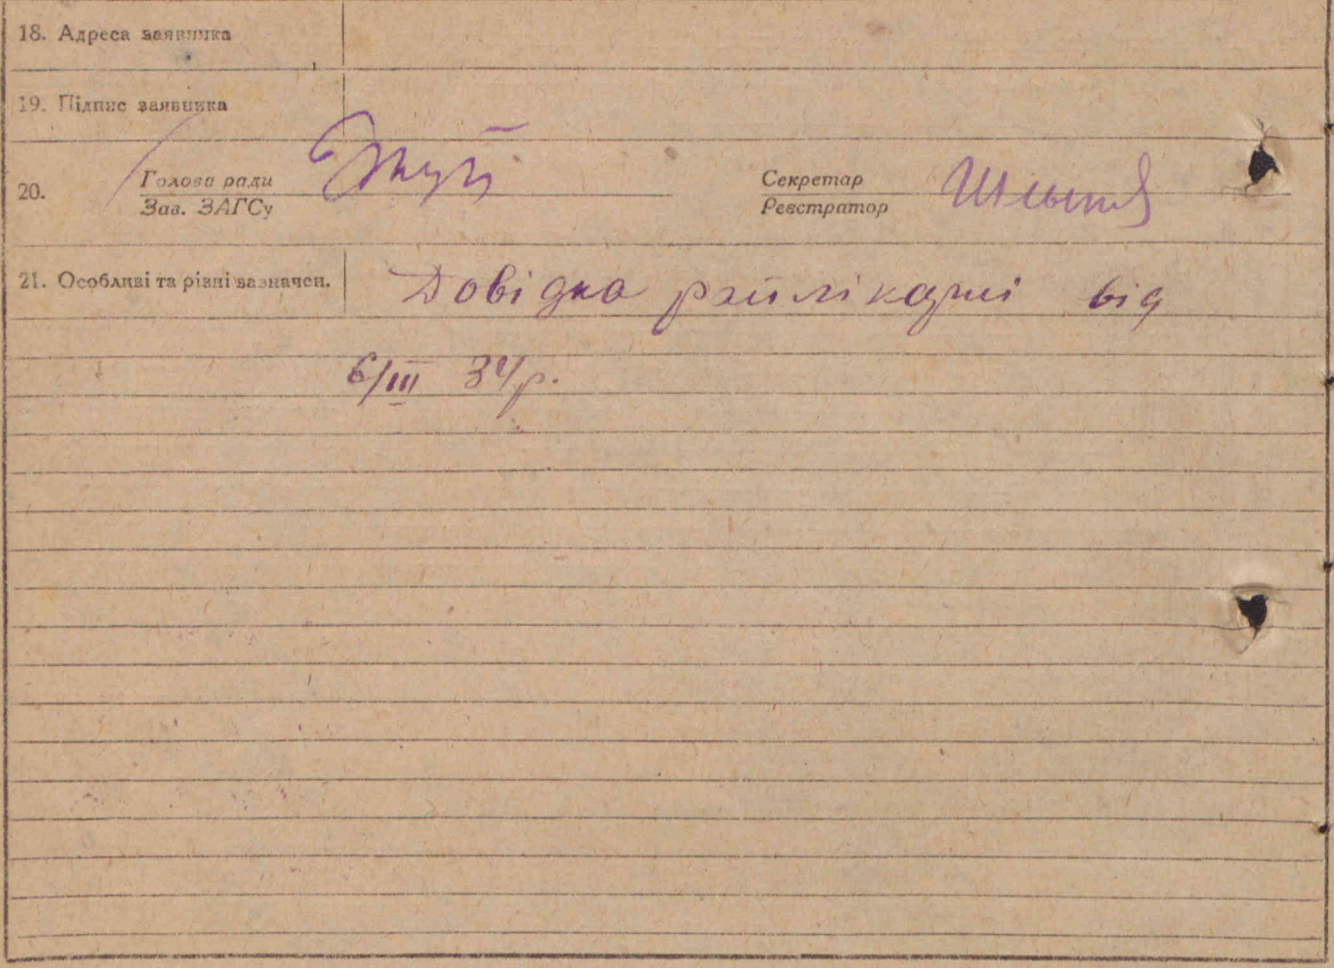 18. Адреса заявника
19. Підпис заявника
20. Голова ради
Зав. ЗАГСу
Секретар
Реєстратор
21. Особливі та різні зазначен. Довідка райлікарні від
6/III 34р.